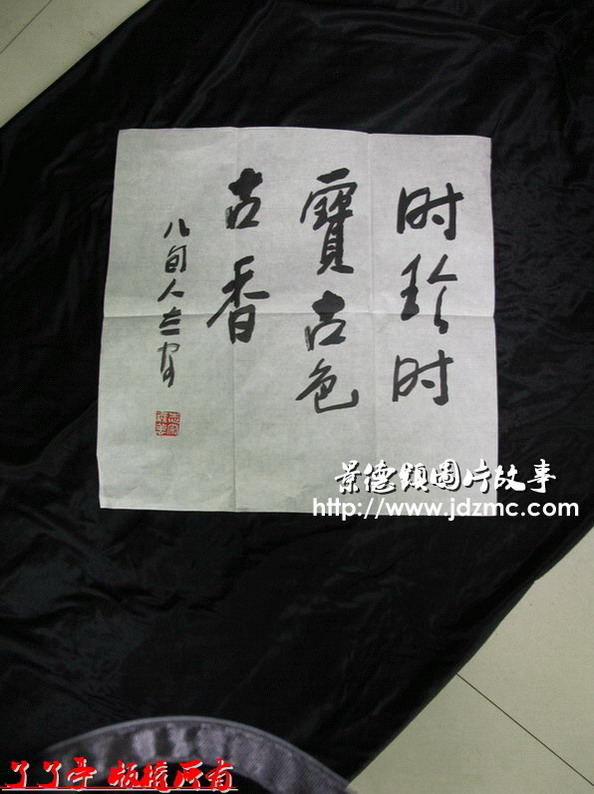 时珍时
寶古色
古香
八旬人
景德鎮圖片故事
http://www.jdzmc.com
了了亭 版權所有